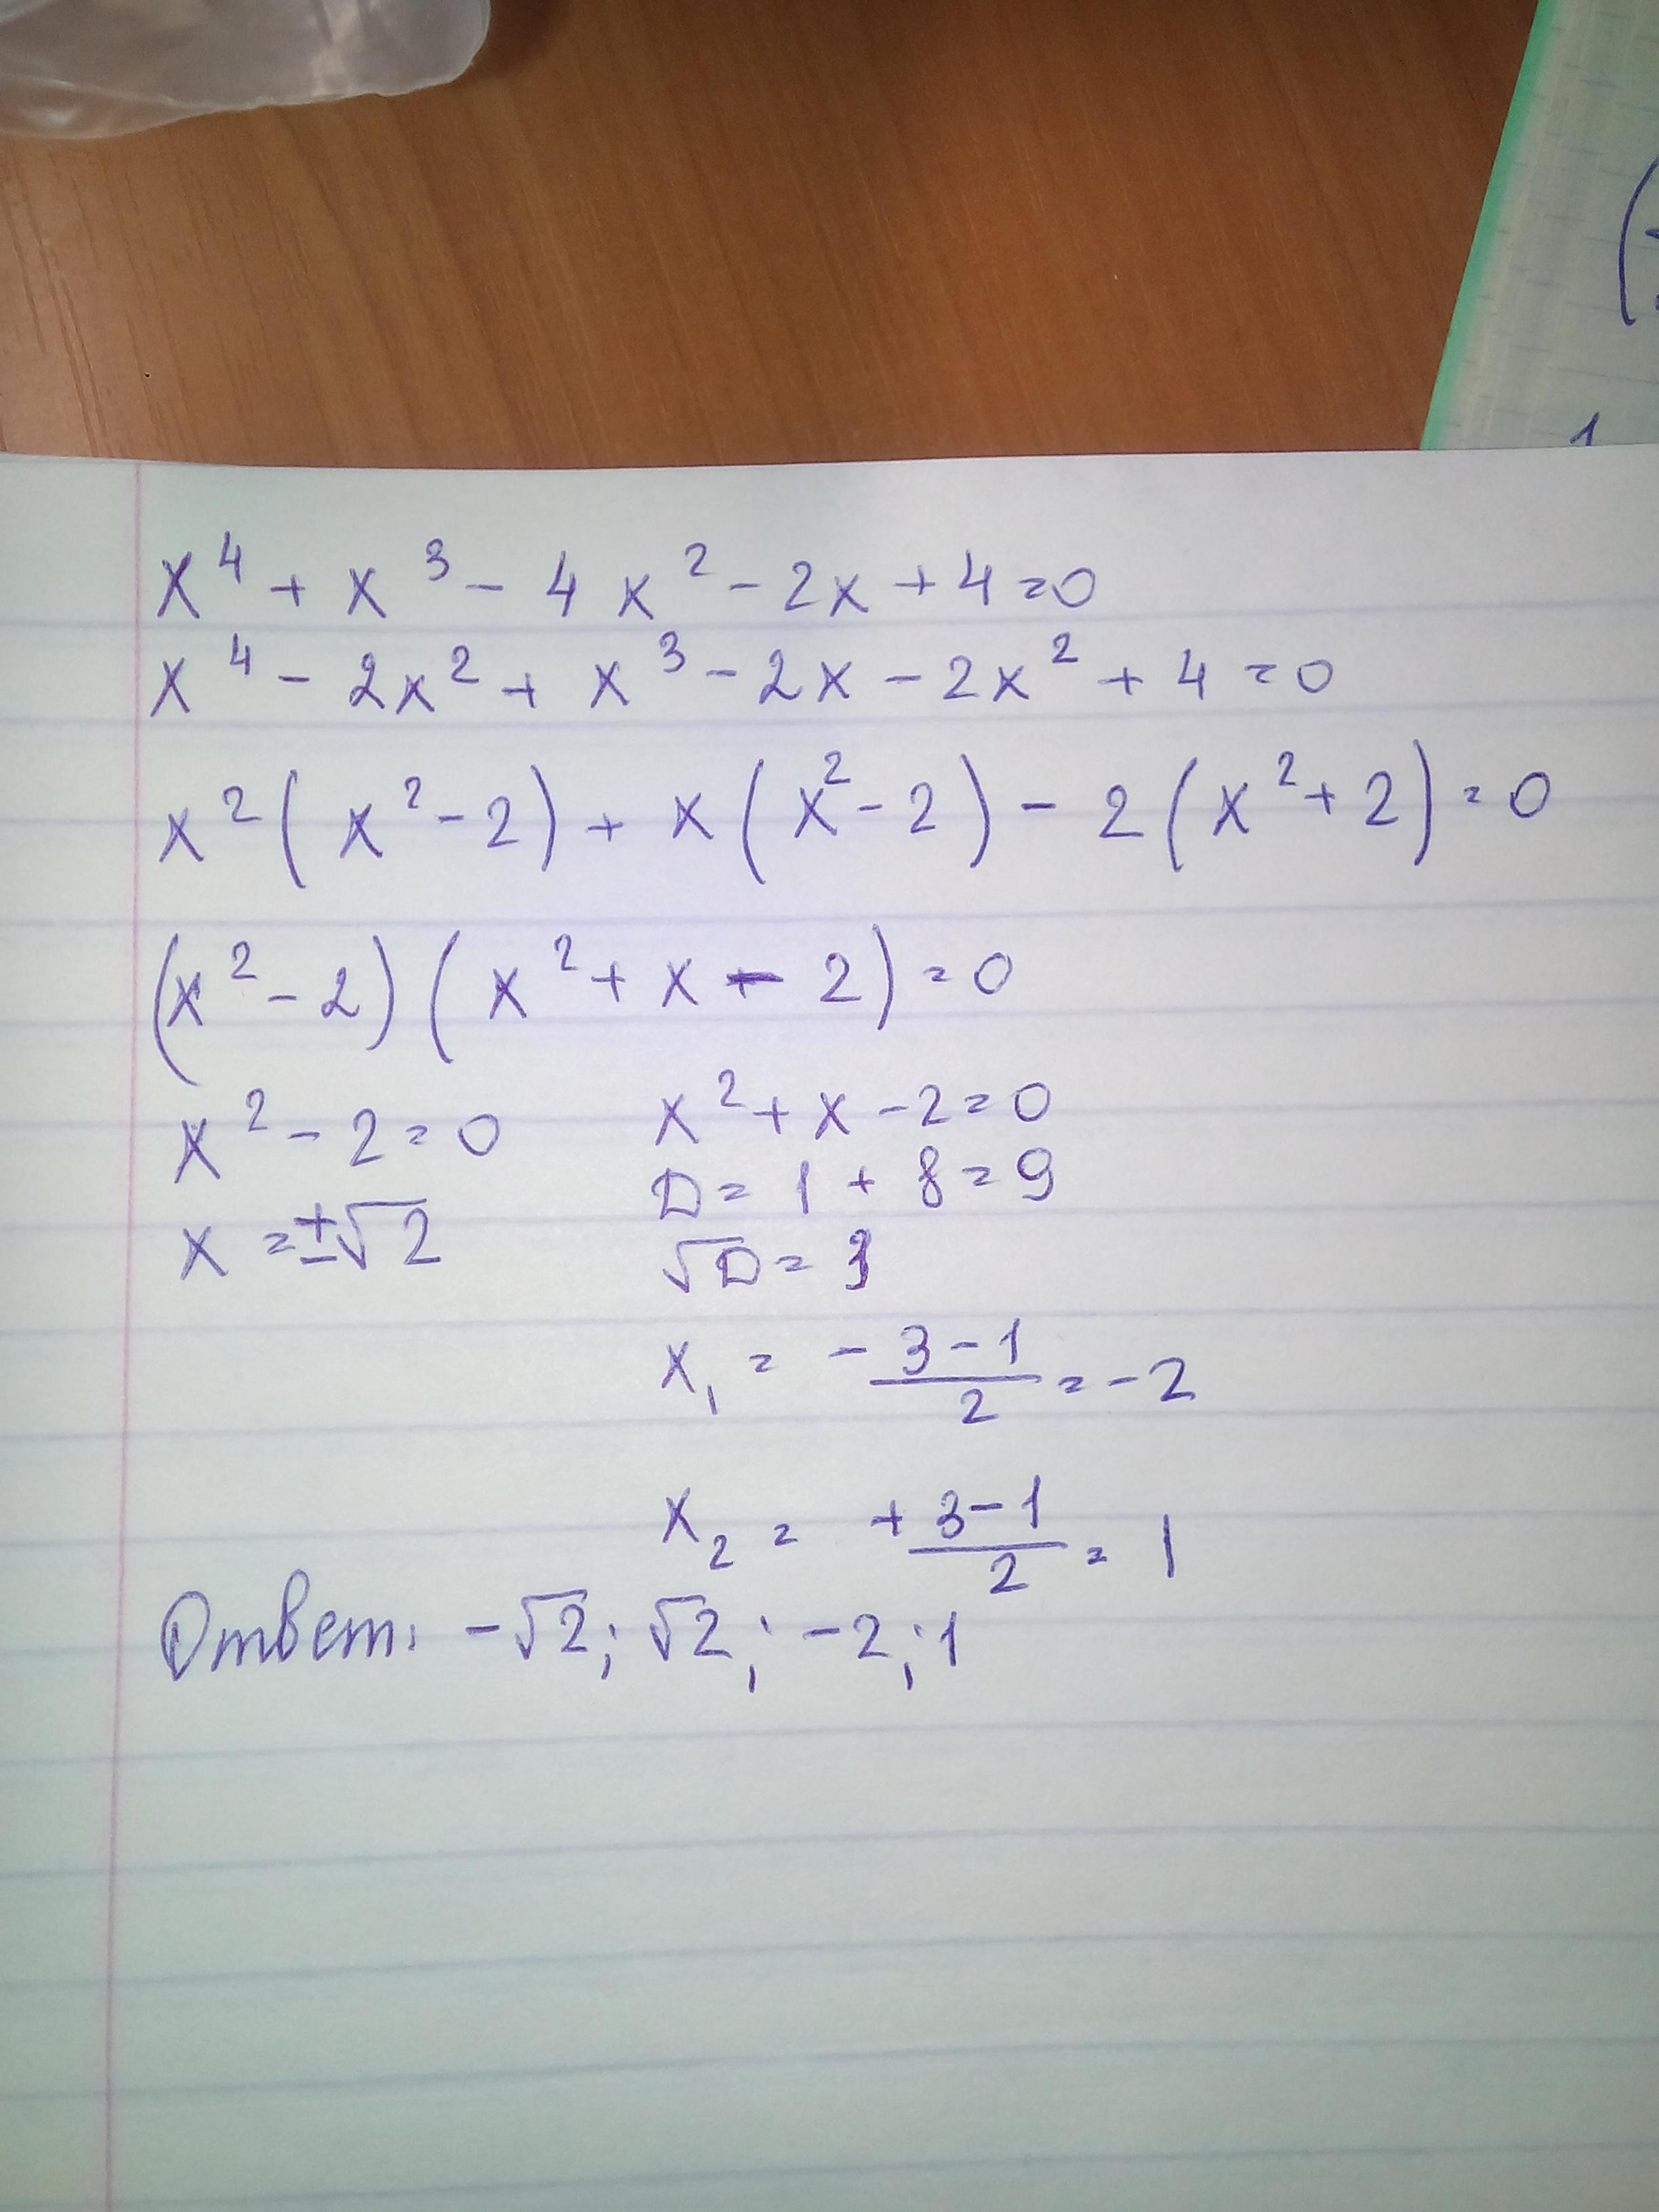 x⁴ + x³ - 4x² - 2x + 4 = 0
x⁴ - 2x² + x³ - 2x - 2x² + 4 = 0
x²(x² - 2) + x(x² - 2) - 2(x² + 2) = 0
(x² - 2)(x² + x - 2) = 0
x² - 2 = 0
x = ±√2
x² + x - 2 = 0
D = 1 + 8 = 9
√D = 3
x₁ = -(3 - 1)/2 = -2
x₂ = +(3 - 1)/2 = 1
Ответ: -√2; √2; -2; 1
(
1